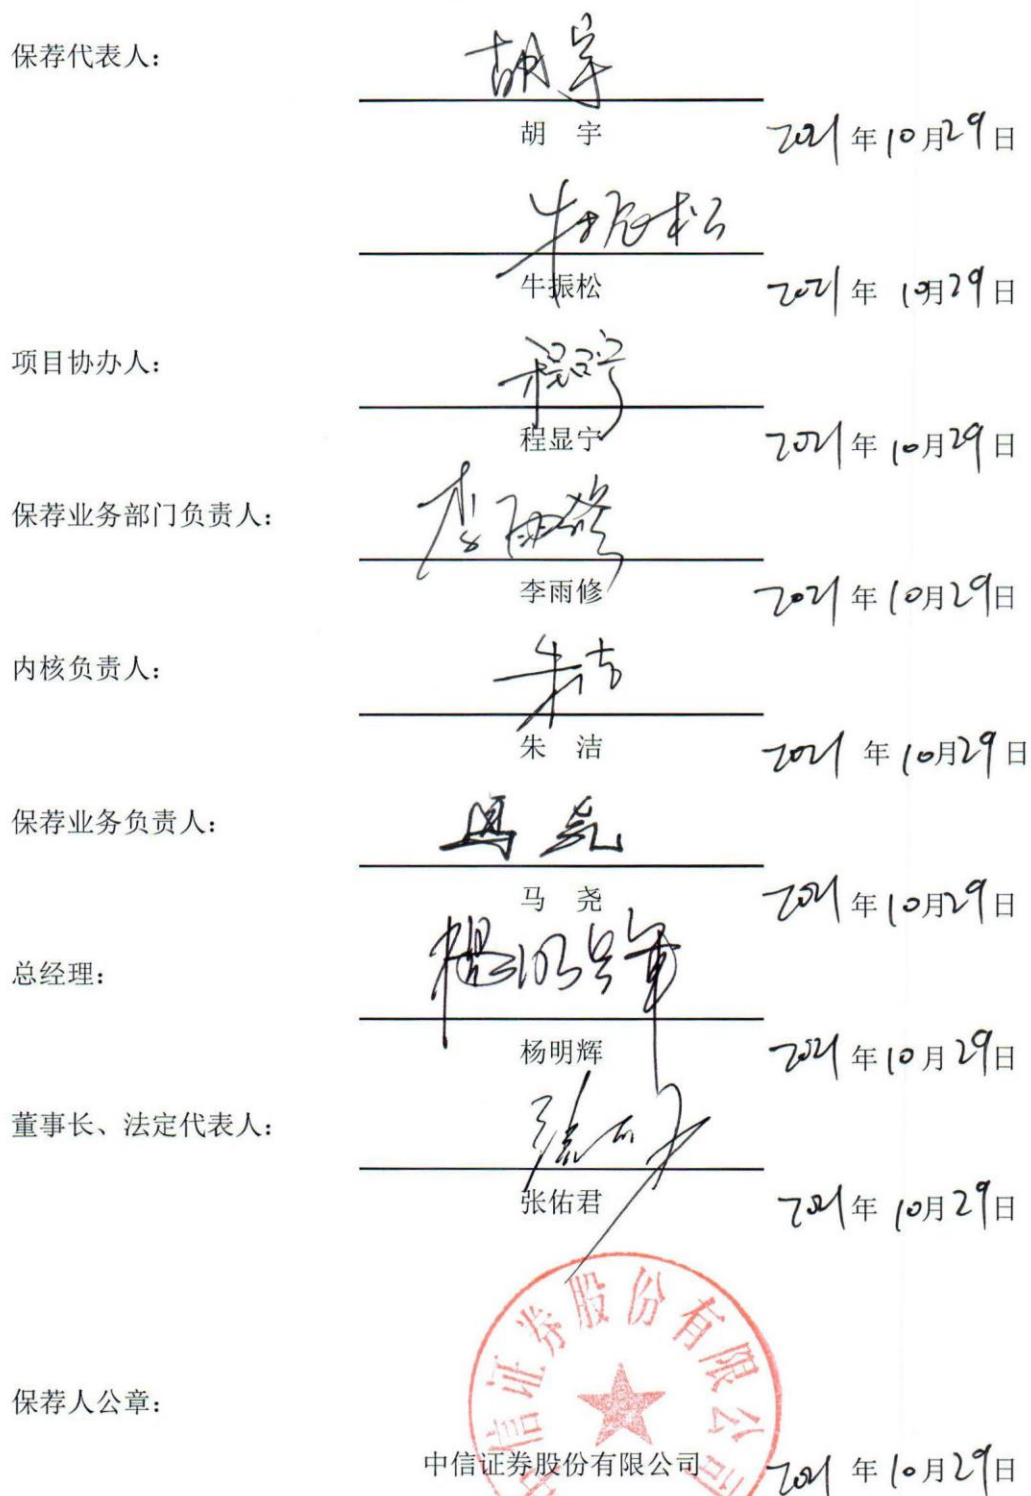 保荐代表人：
胡宇
胡 宇 2021年10月29日
牛振松
牛振松 2021年10月29日
项目协办人：
程显宁
程显宁 2021年10月29日
保荐业务部门负责人：
李雨修
李雨修 2021年10月29日
内核负责人：
朱洁
朱 洁 2021年10月29日
保荐业务负责人：
马尧
马 尧 2021年10月29日
总经理：
杨明辉
杨明辉 2021年10月29日
董事长、法定代表人：
张佑君
张佑君 2021年10月29日
中信证券股份有限公司
保荐人公章：
中信证券股份有限公司 2021年10月29日